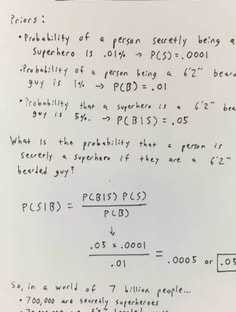 Priors:
• Probability of a person secretly being a
superhero is .01% → P(S) = .0001
• Probability of a person being a 6'2" bear
guy is 1% → P(B) = .01
• Probability that a superhero is a 6'2" be
guy is 5%. → P(B|S) = .05
What is the probability that a person is
secretly a superhero if they are a 6'2"
bearded guy?
P(S|B) = P(B|S) P(S)
P(B)
↓
.05 × .0001
.01
= .0005 or .05
So, in a world of 7 billion people...
• 700,000 are secretly superheroes